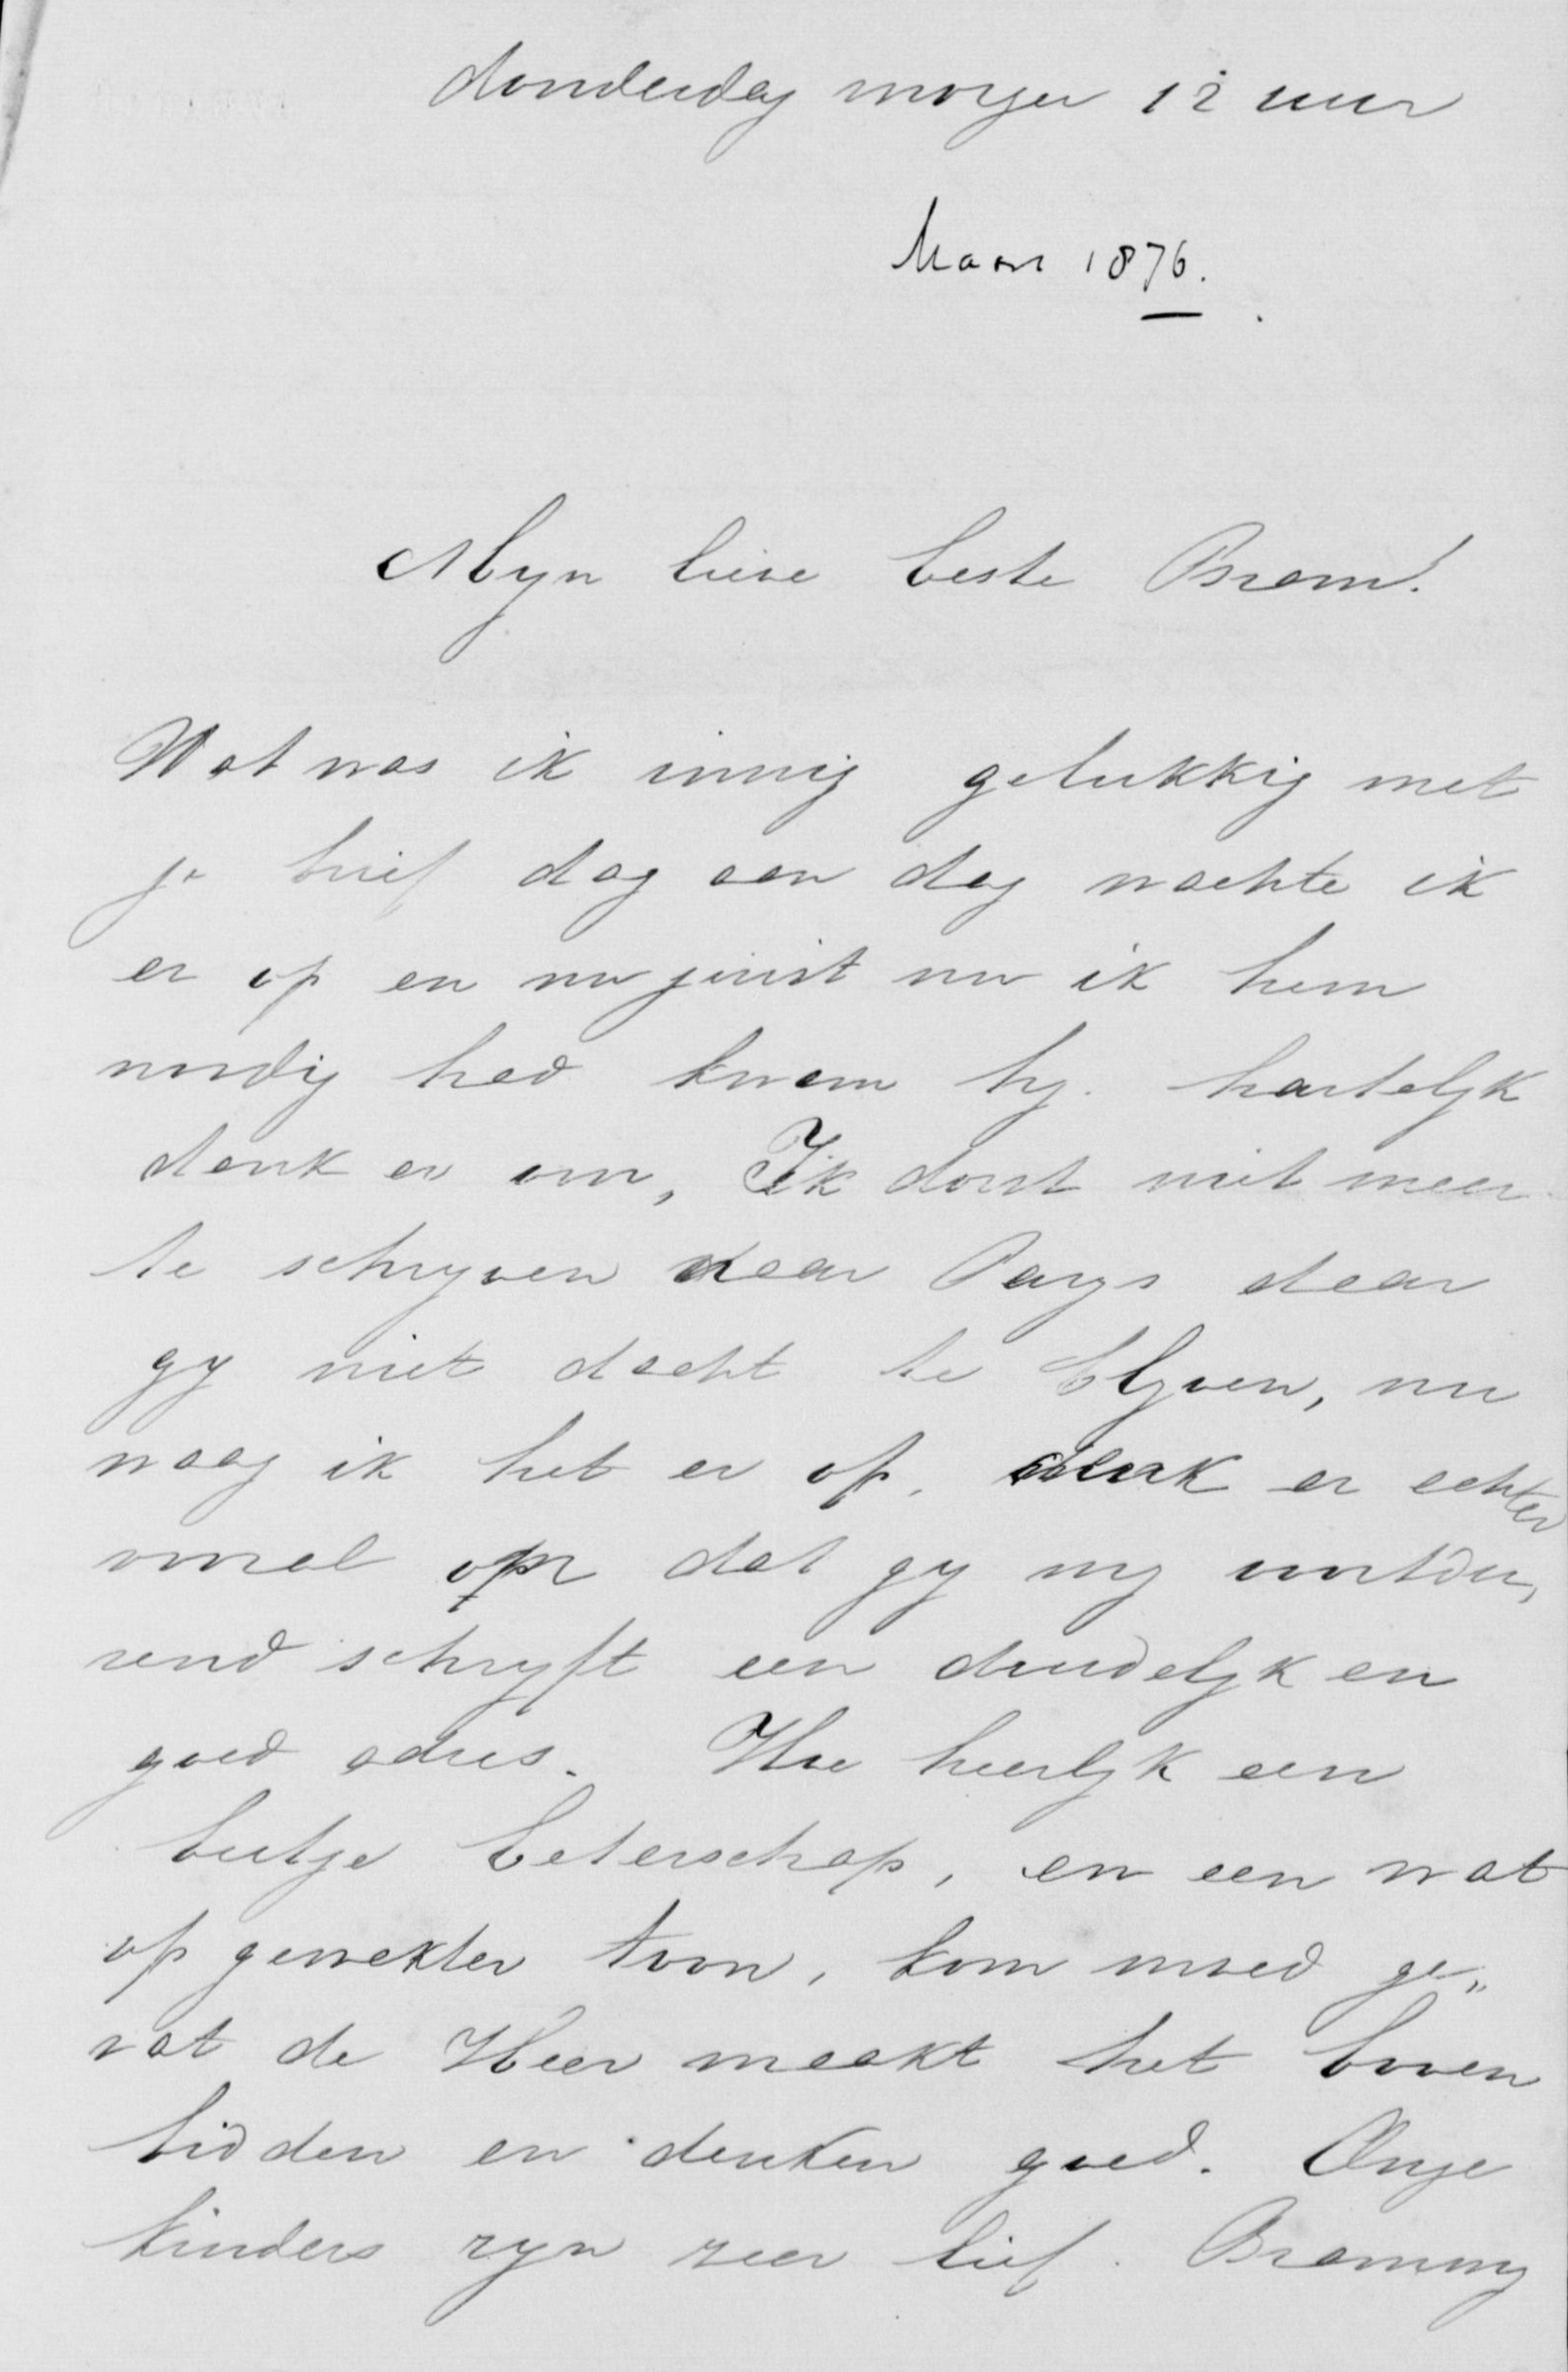 donderdag morgen 12 uur
Maart 1876.
Myn lieve beste Bram!
Wat was ik innig gelukkig met
je brief dag aan dag wachte ik
er op en nu juist nu ik hem
noodig had kwam hy. hartelyk
dank er voor, Ik dorst niet meer
te schryven naar Parys daar
gy niet dacht te blyven, nu
waag ik het er op. denk er echter
vooral om dat gy my voortdu,
rend schryft een duidelyk en
goed adres. Hoe heerlyk een
beetje beterschap, en een wat
op gewekter toon, kom moed ge„
vat de Heer maakt het boven
bidden en denken goed. Onze
kinders zyn zeer lief. Brammy